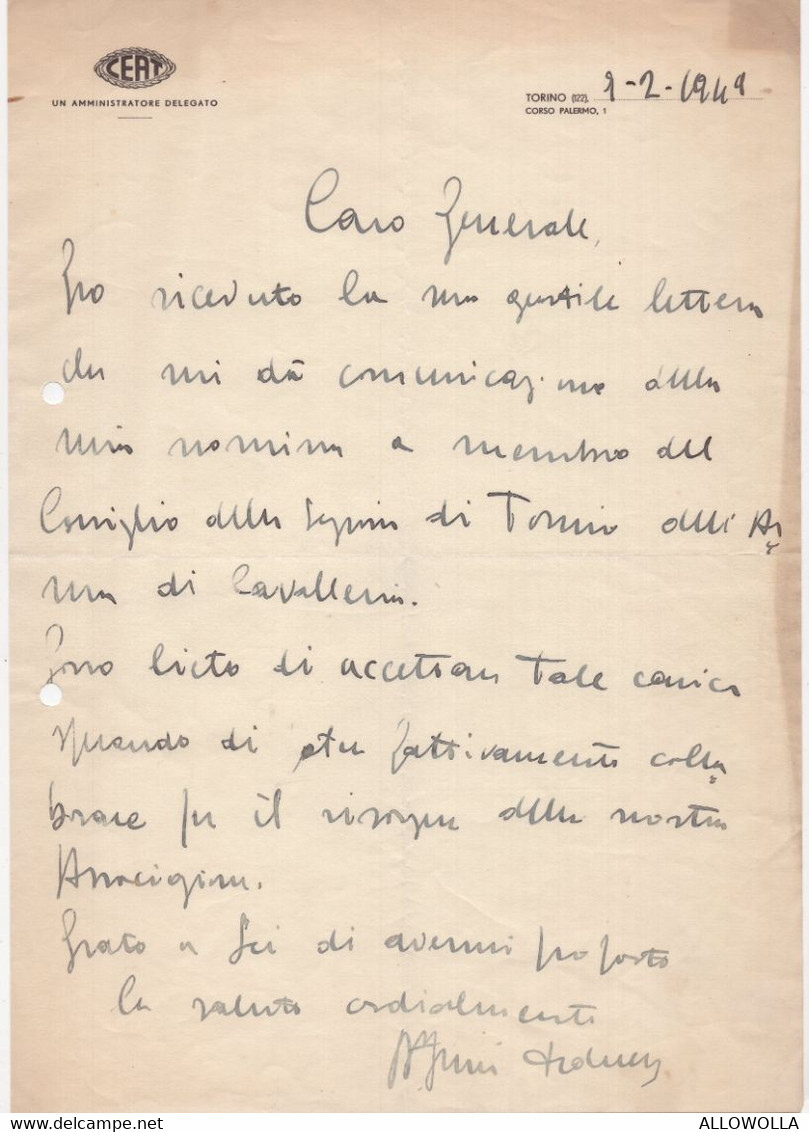 CEAT
UN AMMINISTRATORE DELEGATO
TORINO (122), 9-2-1949
CORSO PALERMO, 1
Caro Generale,
Ho ricevuto la sua gentile lettera
che mi dà comunicazione della
mia nomina a membro del
Consiglio della Sezione di Torino dell'Ar
ma di Cavalleria.
Sono lieto di accettare tale carica
sperando di poter fattivamente colla
borare per il risorgere della nostra
Associazione.
Grato a Lei di avermi proposto
la saluto cordialmente
ALLOWOLLA